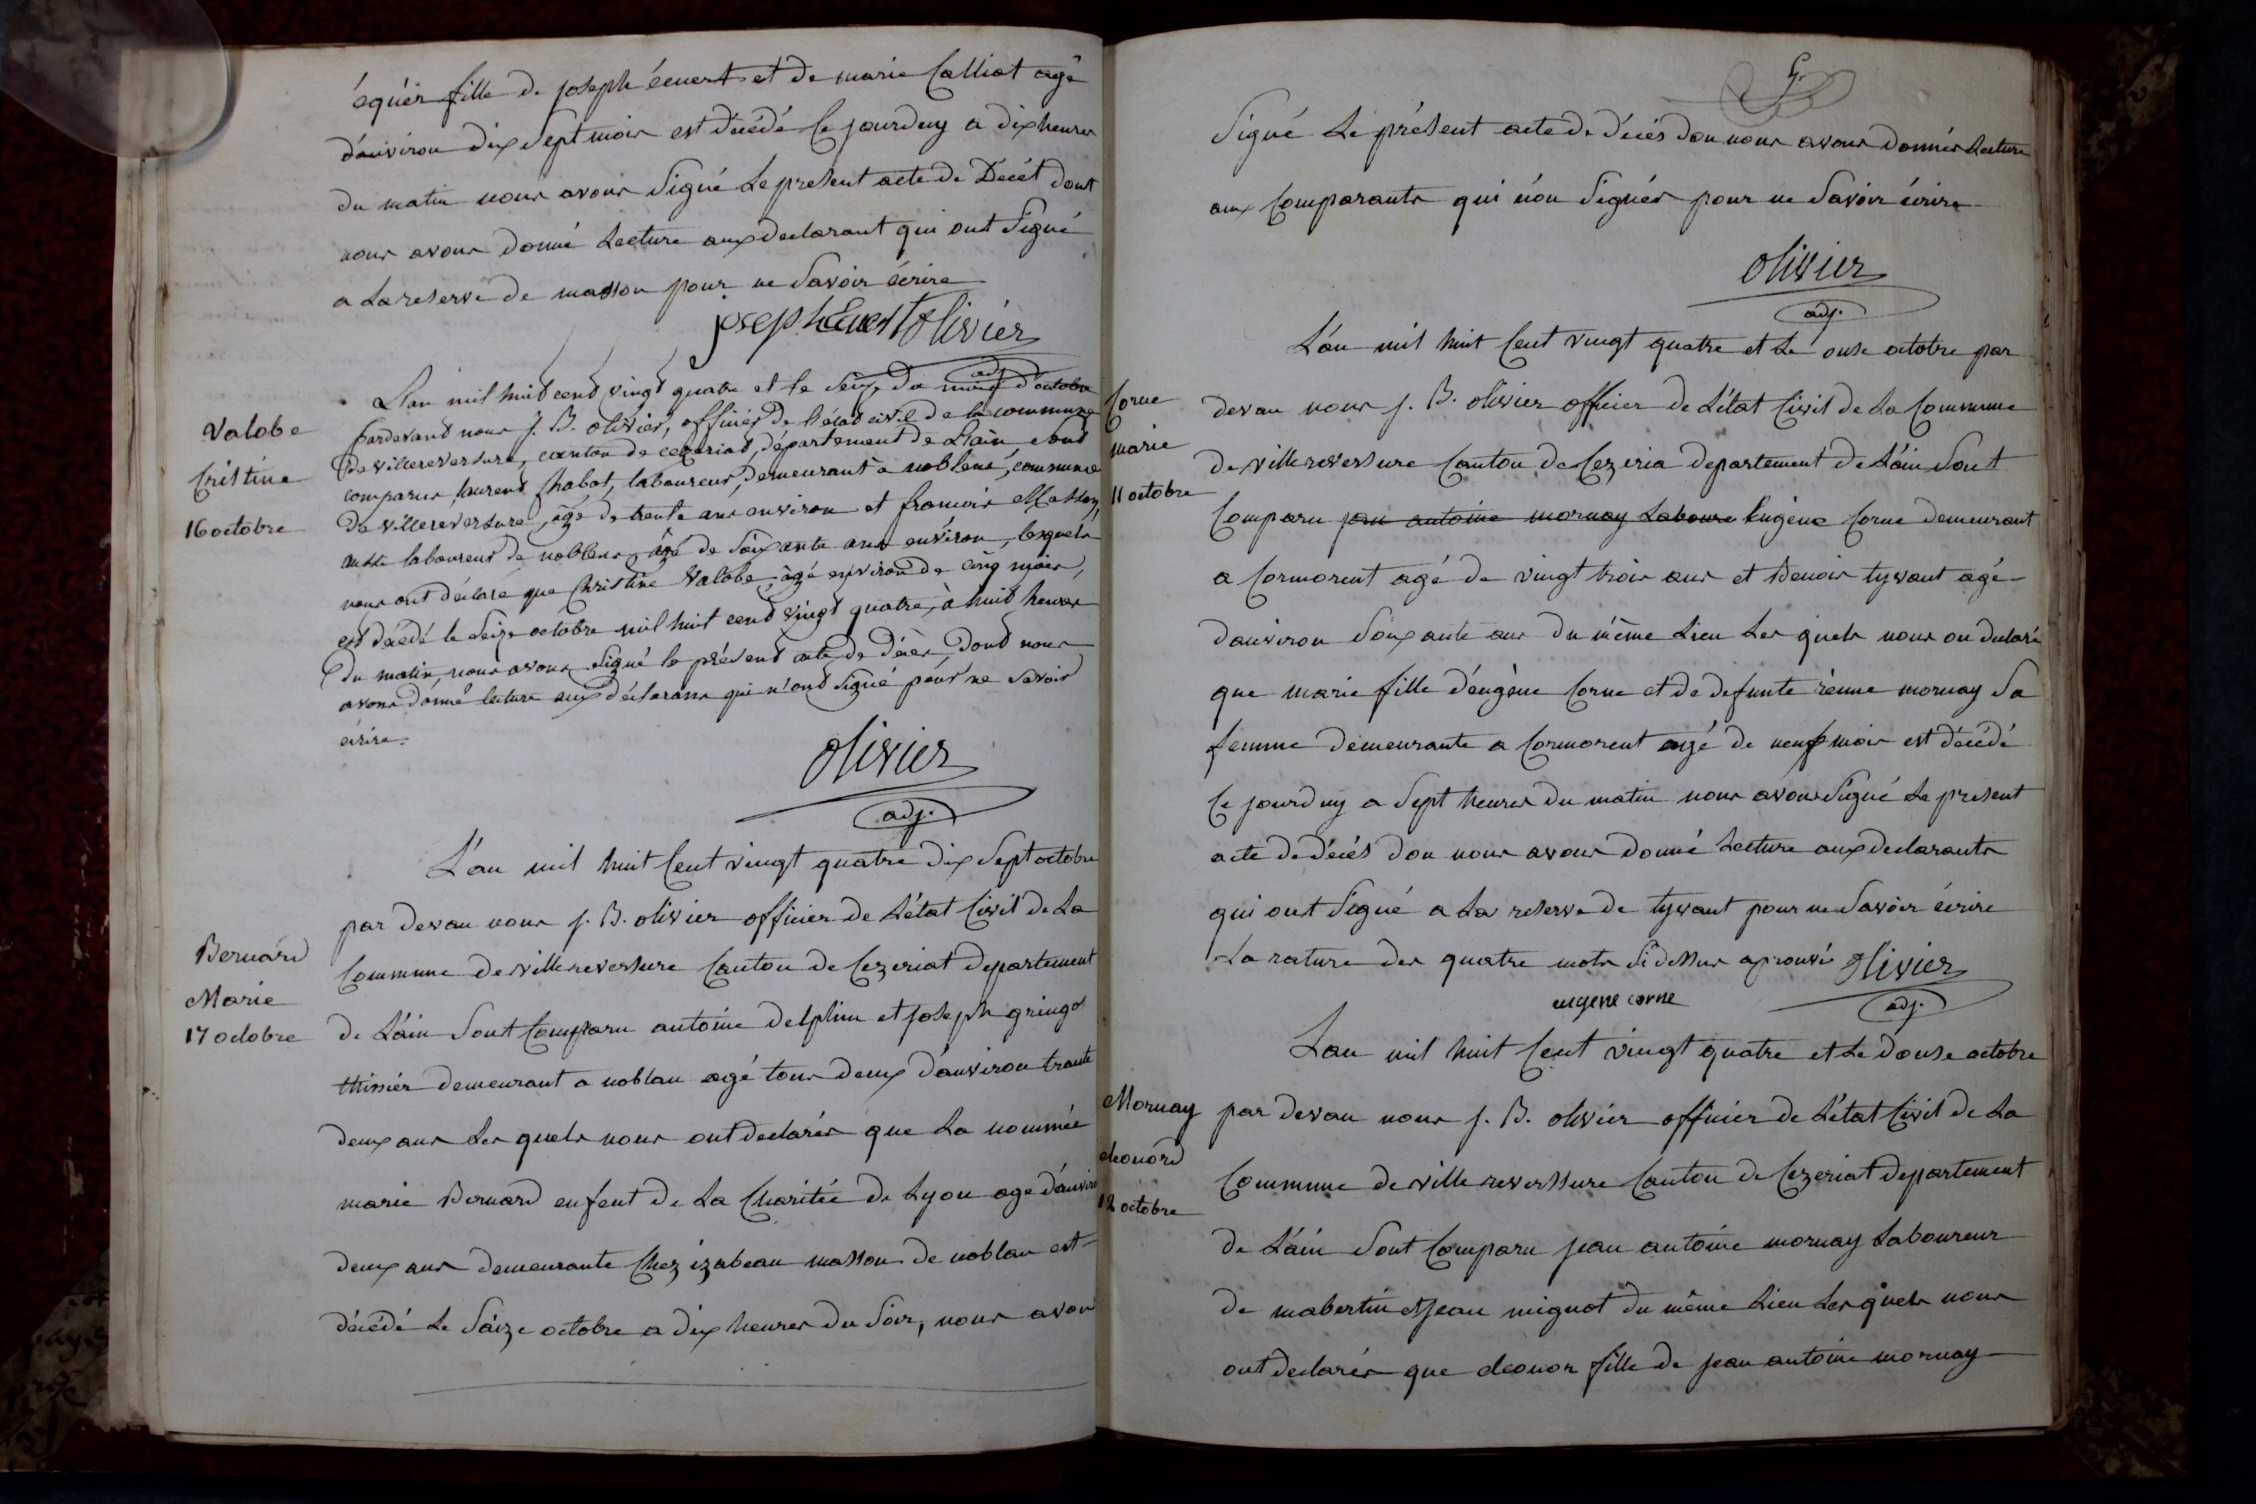 équér fille de joseph écuert et de marie Calliat agé
d'auviron dix sept mois est décédé Ce jourduy a dix heures
du matin nous avons Signé Le present acte de Décét dont
nous avons donné Lecture aux declarant qui ont Signé
a La reserve de masson pour ne Savoir écrire
joseph Ecuert Olivier
adj.
Valobe
Cristine
16 octobre
L'an mil huit cent vingt quatre et le seize du mois d'octobre
pardevant nous J. B. Olivier, officier de l'état civil de la commune
de villereversure, canton de cezeriat, département de L'ain sont
comparus laurent chabot, laboureur, demeurant à noblens, commune
de villereversure, âgé de trente ans environ et francois Masson,
aussi laboureur de noblens, âgé de soixante ans environ, lesquels
nous ont déclaré que Christine Valobe, âgé environ de cinq mois,
est décédé le seize octobre mil huit cent vingt quatre, à huit heures
du matin, nous avons signé le présent acte de décès, dont nous
avons donné lecture aux déclarans qui n'ont signé pour ne savoir
écrire.
Olivier
adj.
Bernard
Marie
17 octobre
L'an mil huit Cent vingt quatre dix Sept octobre
par devan nous j. B. olivier officier de L'état Civil de La
Commune de villereversure Canton de Cezeriat departement
de L'ain Sont Comparu antoine delphin et joseph gringo
thissier demeurant a noblan agé tous deux d'auviron trante
deux ans Les quels nous ont declarés que La nommée
marie Bernard enfent de La Charitée de Lyon age d'auviro
deux ans demeurante Chez izabeau masson de noblan est
décédé Le Saize octobre a dix heures du Soir, nous avon
Signé Le présent acte de décés don nous avons donnés Lecture
aux Comparants qui n'on Signés pour ne Savoir écrire
Olivier
adj.
Corne
marie
11 octobre
L'an mil huit Cent vingt quatre et Le onse octobre par
devan nous j. B. olivier officier de L'état Civil de La Commune
de villereversure Canton de Cezeria departement de L'ain Sont
Comparu jean antoine mornay Laboure Eugène Corne demeurant
a Cormorent agé de vingt trois ans et Benoir tyvant agé
d'auviron Soixante ans du même Lieu Les quels nous on declaré
que marie fille d'eugène Corne et de defunte réenne mornay Sa
femme demeurante a Cormorent agé de neuf mois est décédé
Ce jourduy a Sept heures du matin nous avons Signé Le present
acte de décés don nous avons donné Lecture aux declarants
qui ont Signé a La reserve de tyvant pour ne Savoir écrire
La rature des quatre mots Si dessus aprouvé Olivier
eugene corne
adj.
Mornay
eleonord
12 octobre
L'an mil huit Cent vingt quatre et Le douse octobre
par devan nous j. B. olivier officier de L'état Civil de La
Commune de villereversure Canton de Cezeriat departement
de L'ain Sont Comparu jean antoine mornay Laboureur
de mabertin et jean mignot du même Lieu Les quels nous
ont declarés que eleonor fille de jean antoine mornay